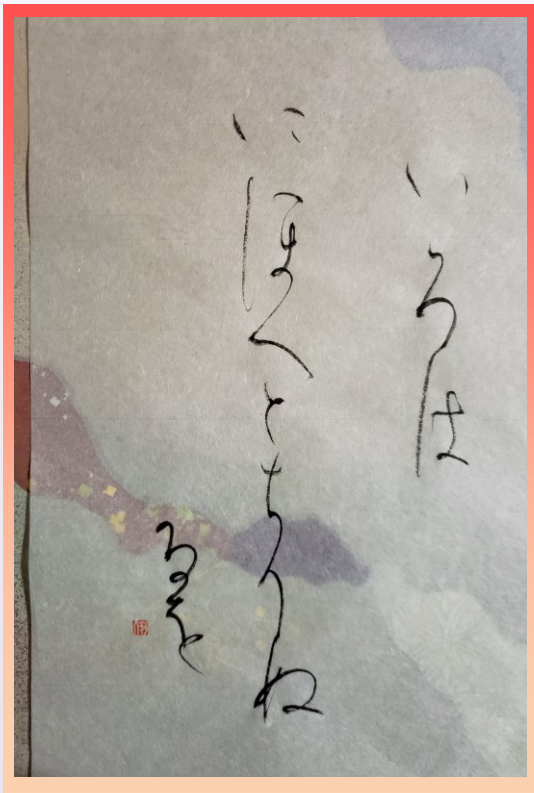 いろは
にほへとちりぬ
るを